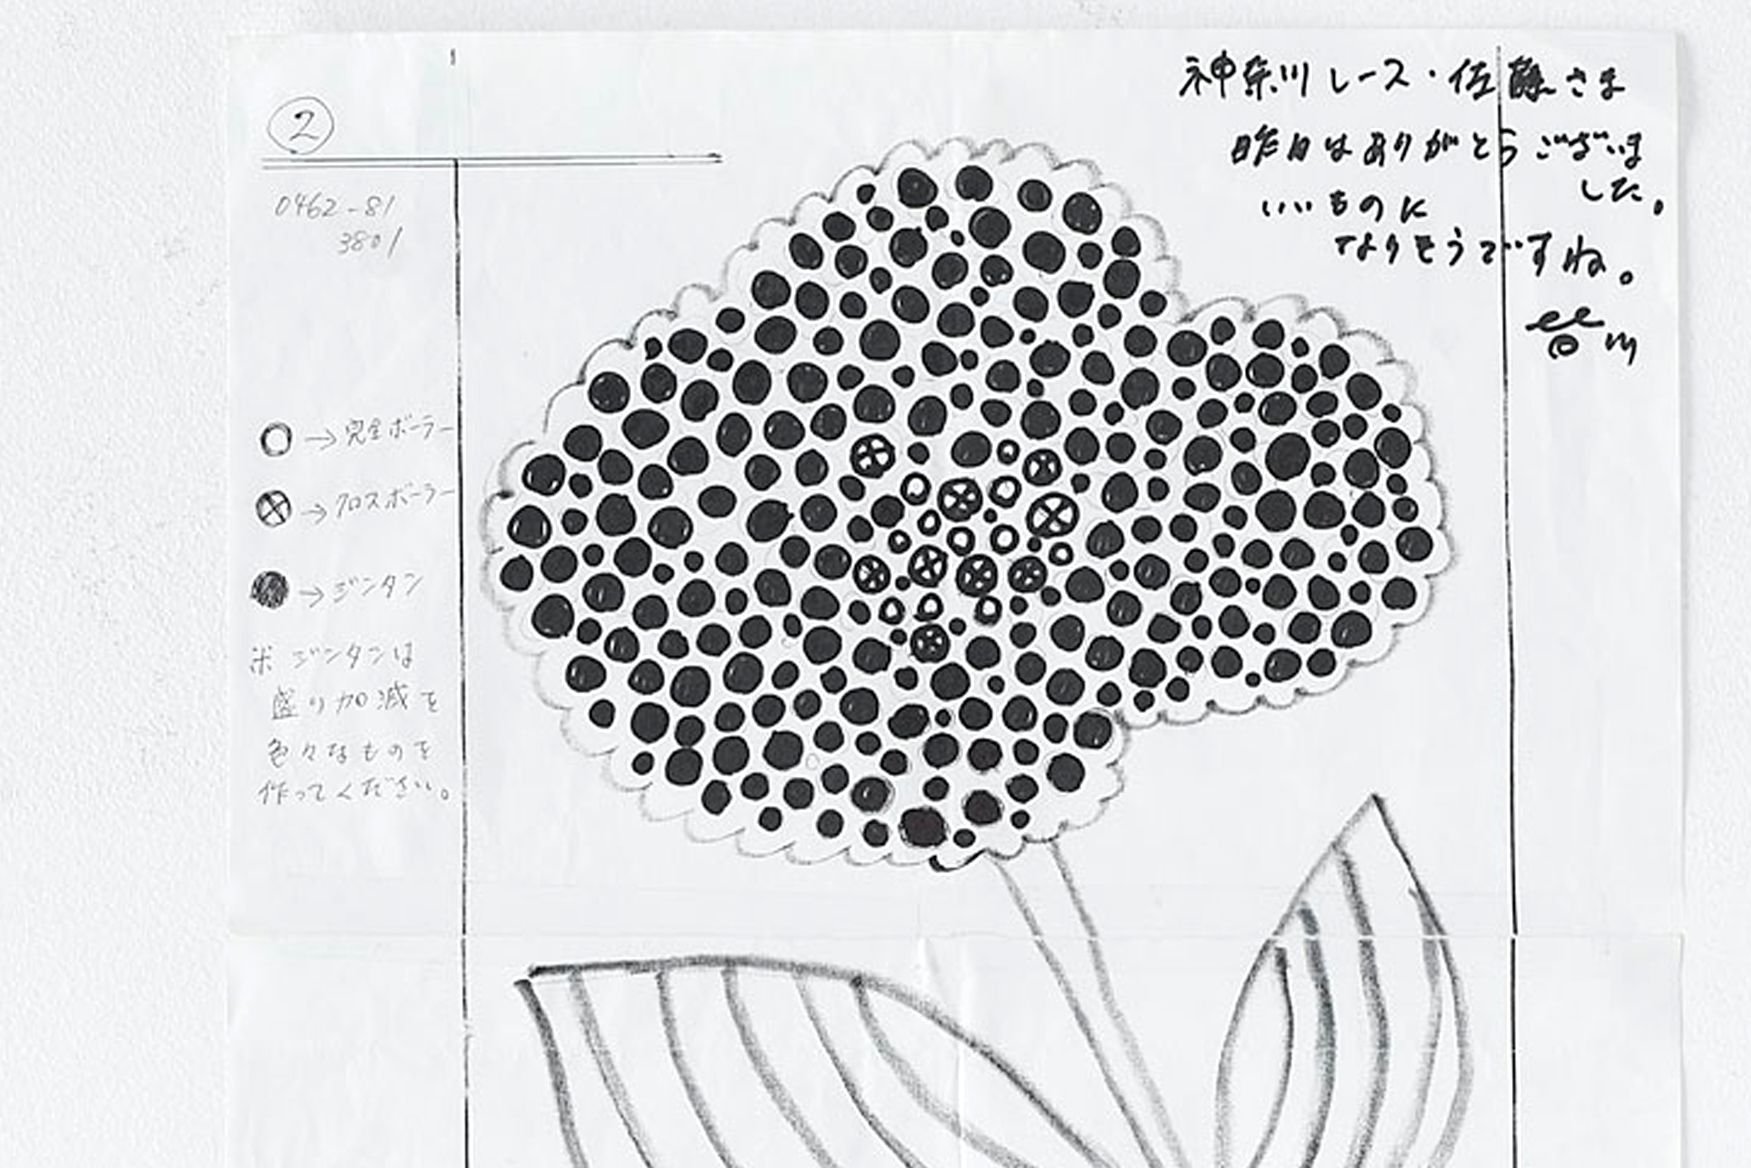 ②
0462-81
3801
神奈川レース・佐藤さま
昨日はありがとうございま
した。
いいものに
なりそうですね。
皆川
→完全ボーラー
→クロスボーラー
→ジンタン
※ ジンタンは
盛り加減を
色々なものを
作ってください。